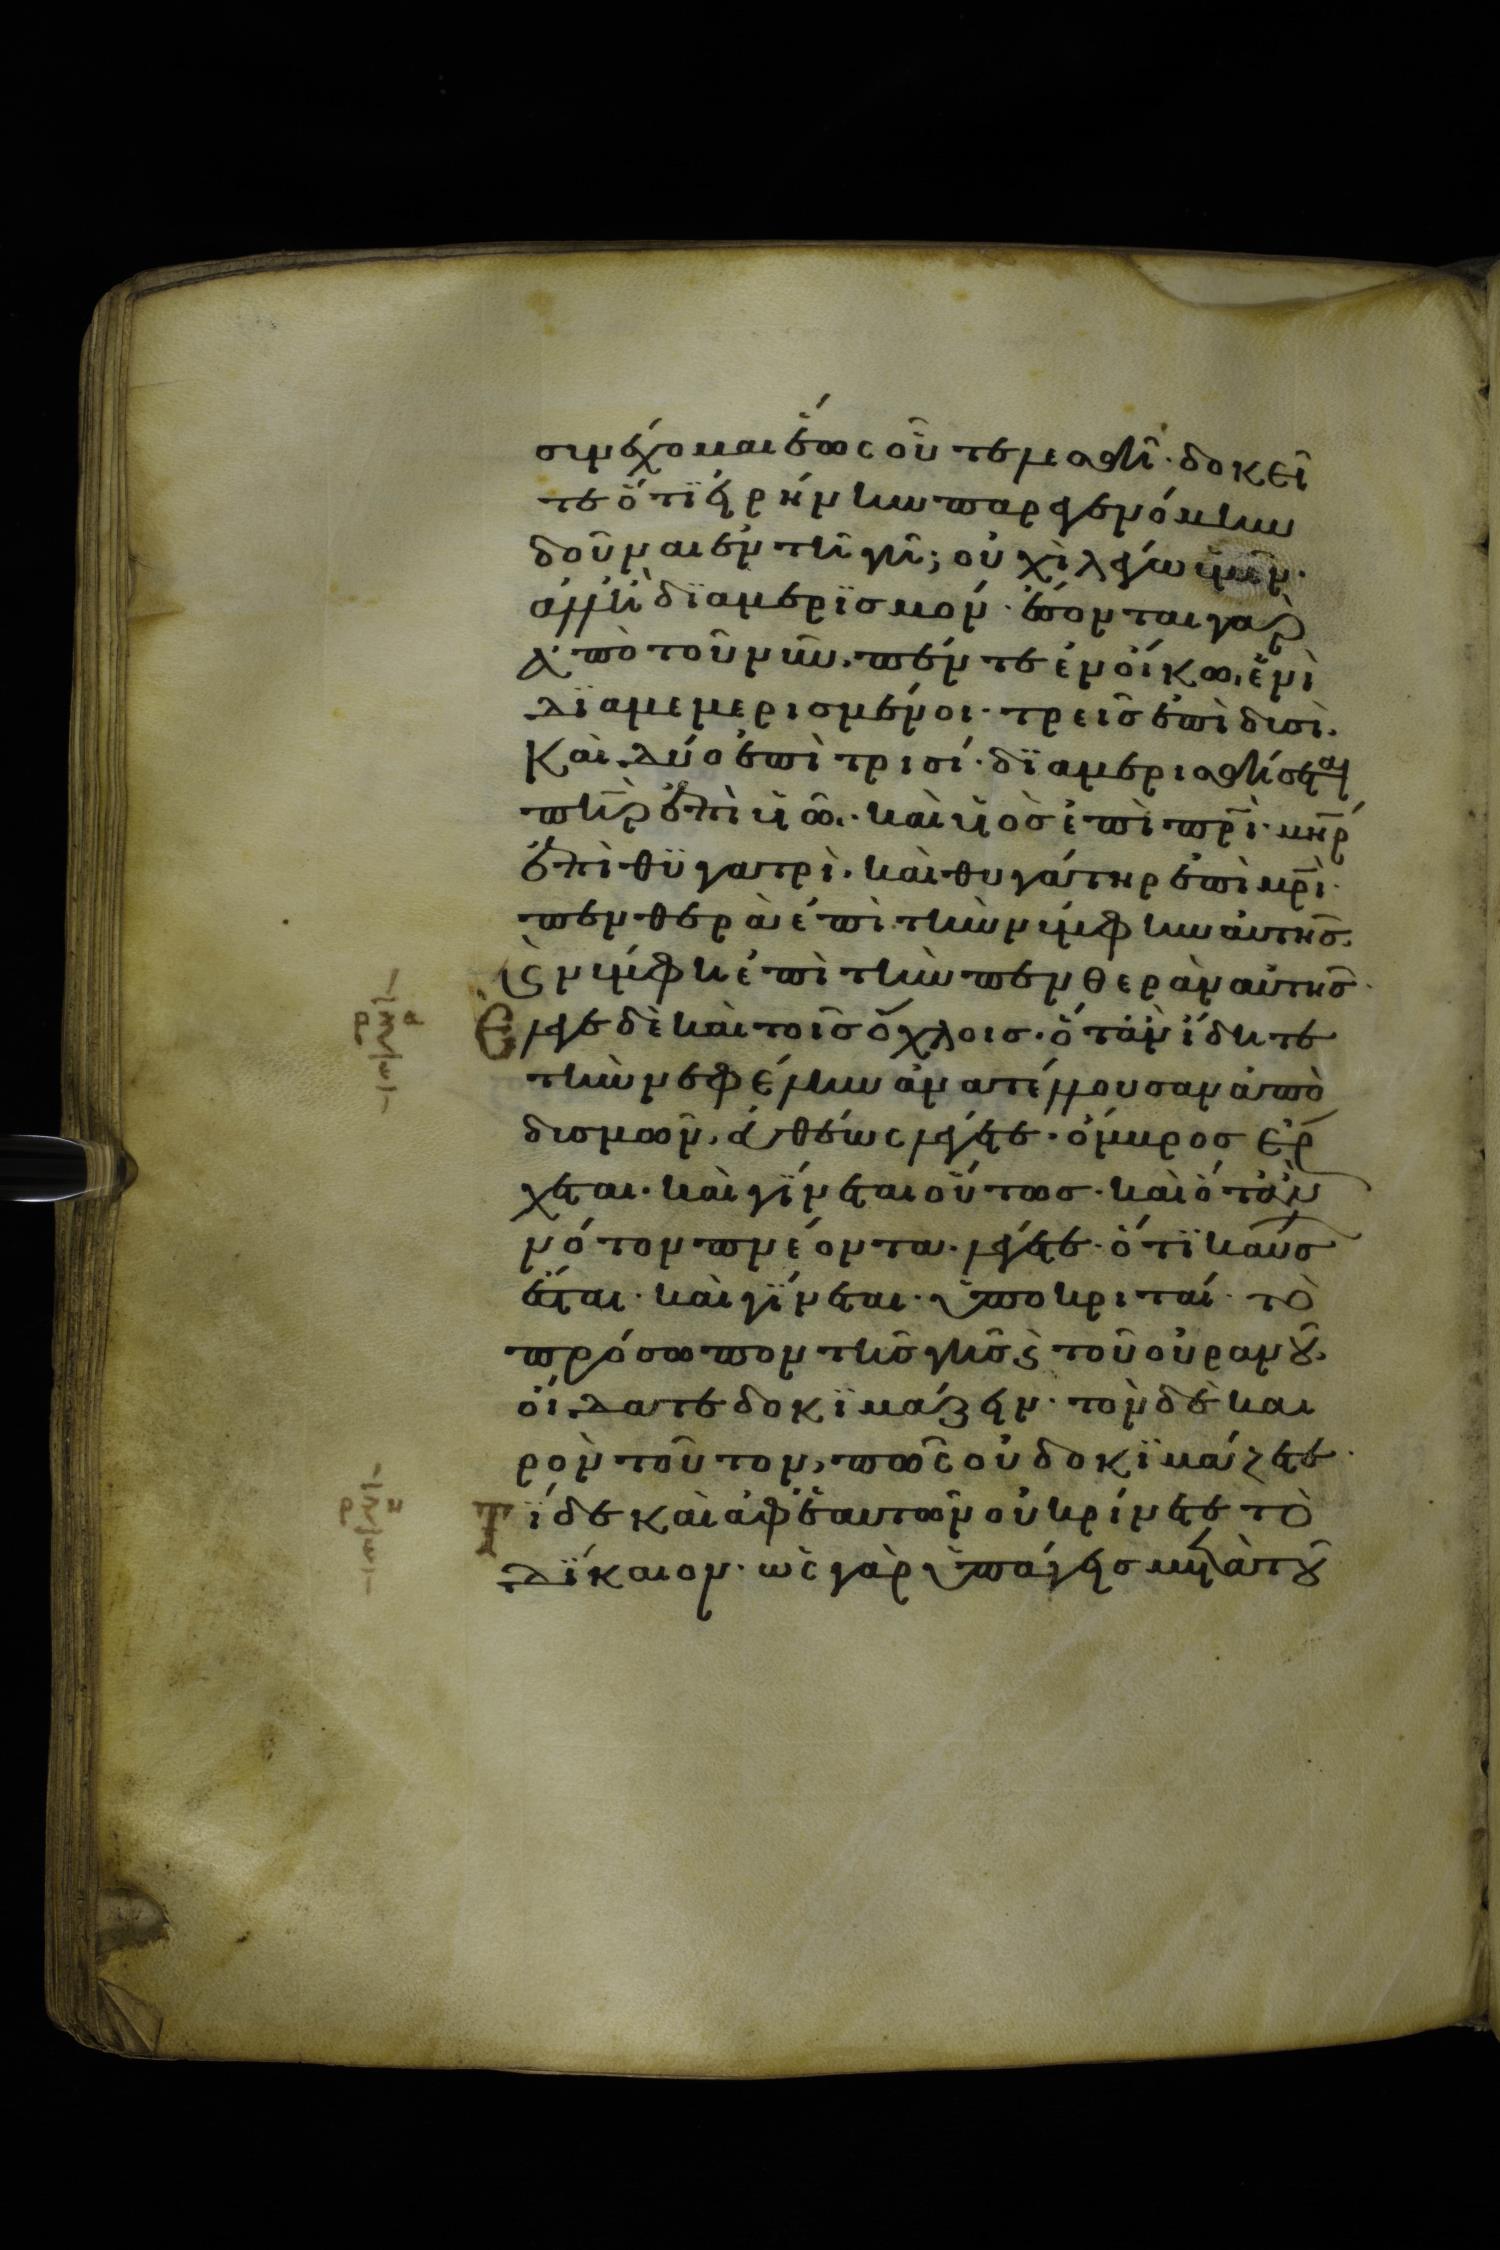 σινέχομαι ἕως οὗ τελεσθῆ· δοκεῖ
τε ὅτι εἰρήνην παρεγενόμην
δοῦναι ἐν τῆ γῆ; οὐχὶ λέγω ὑμῖν·
ἀλλ' ἢ διαμερισμόν· ἔσονται γὰρ
ἀπὸ τοῦ νῦν, πέντε ἐν οἴκω ἑνὶ
διαμεμερισμένοι· τρεῖς ἐπὶ δισὶ.
καὶ δύο ἐπὶ τρισί· διαμερισθήσεται
πη̅ρ ἐπὶ υ̅ω̅. καὶ υ̅ο̅ς ἐπὶ πρ̅ι̅· μη̅ρ
ἐπὶ θυγατρὶ. καὶ θυγάτηρ ἐπὶ μρ̅ι̅·
πενθερὰ ἐπὶ τὴν νύμφην αὐτῆς.
ϛ νύμφη ἐπὶ τὴν πενθερὰν αὐτῆς·
Ἔλεγε δὲ καὶ τοῖς ὄχλοις. ὅταν ἴδητε
τὴν νεφέλην ἀνατέλλουσαν ἀπὸ
δισμῶν, εὐθέως λέγετε· ὄμβρος ἔρ
χεται. καὶ γίνεται οὕτως. καὶ ὅταν
νότον πνέοντα. λέγετε· ὅτι καύσ
ἔσται. καὶ γίνεται. ὑποκριταί· τὸ
πρόσωπον τῆς γῆς ϛ τοῦ οὐρανοῦ.
οἴδατε δοκιμάζειν· τὸν δὲ και
ρὸν τοῦτον, πῶς οὐ δοκιμάζετε·
Τί δε καὶ ἀφ' ἑαυτῶν οὐ κρίνετε τὸ
δίκαιον· ὡς γὰρ ὑπάγεις μετὰ τοῦ